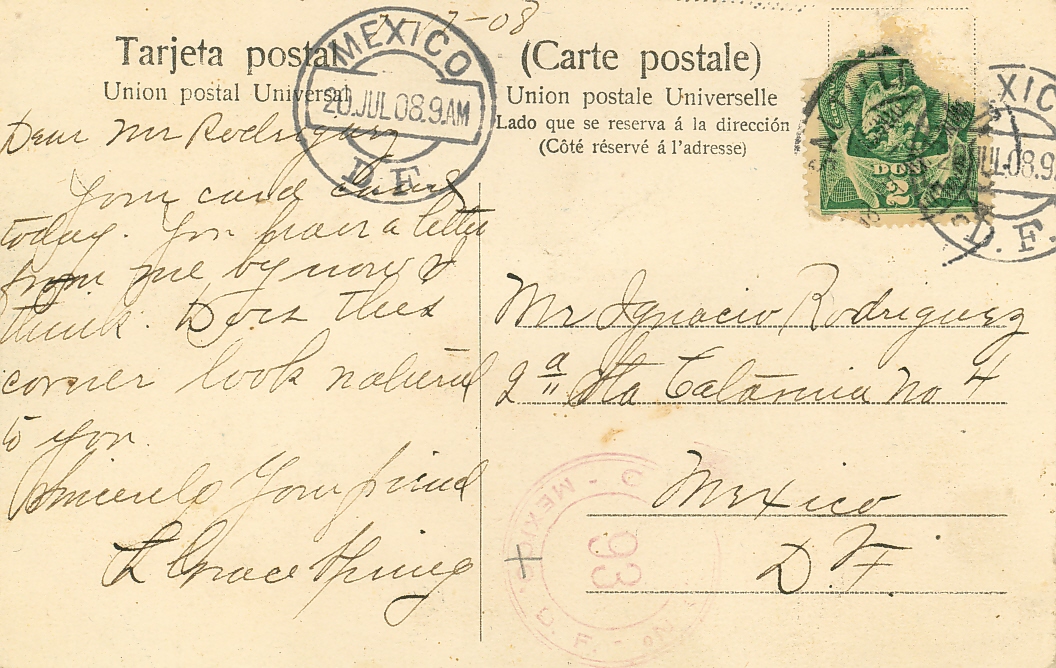 7-17-08
Tarjeta postal
Union postal Universal
(Carte postale)
Union postale Universelle
Lado que se reserva á la dirección
(Côté réservé á l'adresse)
MEXICO
20.JUL.08.9.AM
D.F.
MEXICO
JUL.08.9.
D.F.
DOS
2
Dear Mr Rodriguez
Your card came
today. You have a letter
from me by now I
think. Does this
corner look natural
to you.
Sincerely Your friend
L Grace Spring
Mr Ignacio Rodriguez
2a Sta Catarina No 4
Mexico
D.F.
MEXICO
93
D. F.